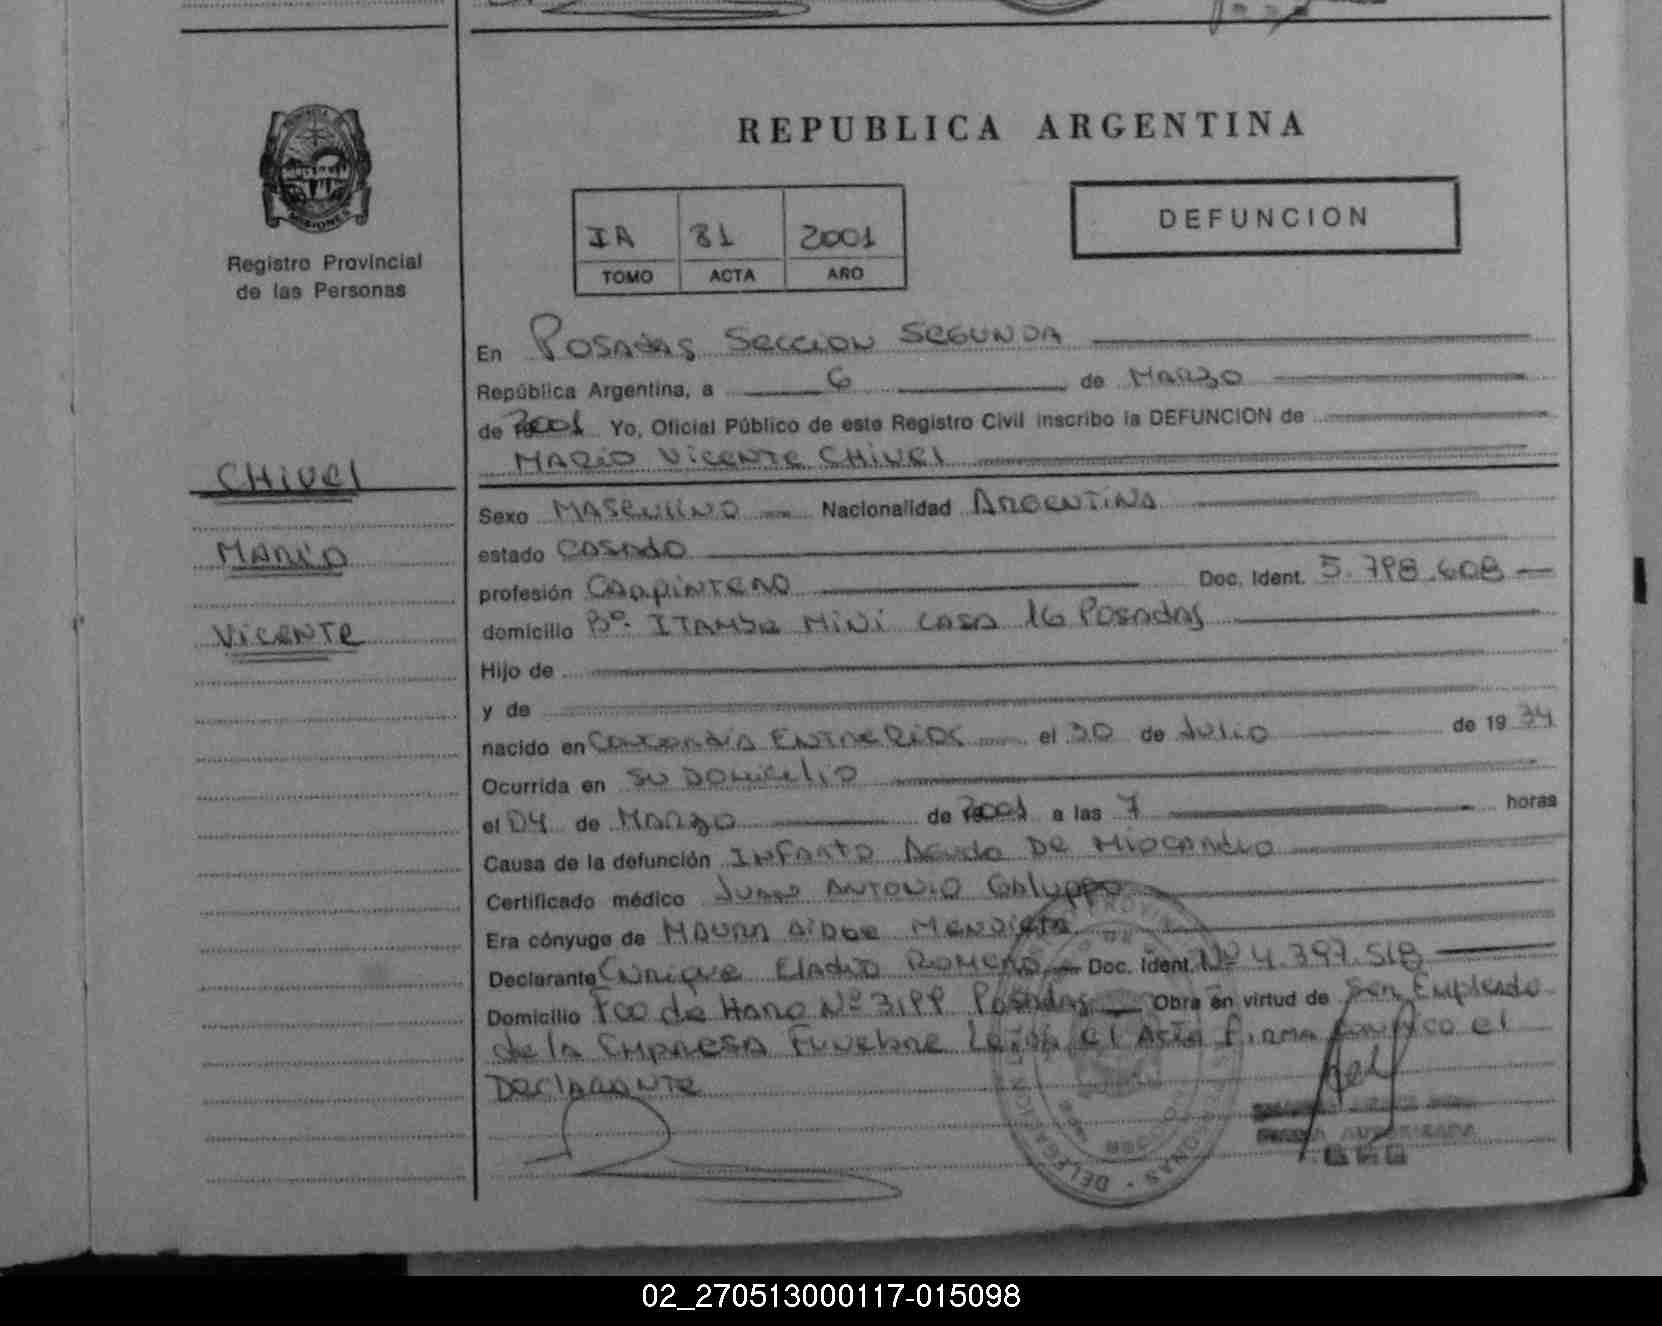 REPUBLICA ARGENTINA
Registro Provincial
de las Personas
IA 81 2001
TOMO ACTA AÑO
DEFUNCION
En Posadas Seccion Segunda
República Argentina, a 6 de Marzo
de 2001 Yo, Oficial Público de este Registro Civil inscribo la DEFUNCION de
Mario Vicente Chivel
Chivel
Mario
Vicente
Sexo Masculino Nacionalidad Argentina
estado Casado
profesión Carpintero Doc. Ident. 5.798.608
domicilio Bº ITAMBE Mini casa 16 Posadas
Hijo de
y de
nacido en Concordia Entre Rios el 30 de Julio de 1934
Ocurrida en su Domicilio
el 04 de Marzo de 2001 a las 7 horas
Causa de la defunción Infarto Agudo De Miocardio
Certificado médico Juan Antonio Galuppo
Era cónyuge de Maura Aidee Mendieta
Declarante Enrique Eladio Romero Doc. Ident. Nº 4.397.518
Domicilio Fco de Haro Nº 3199 Posadas Obra en virtud de Ser Empleado
de la Empresa Funebre Leida el Acta firma conmigo el
Declarante
02_270513000117-015098